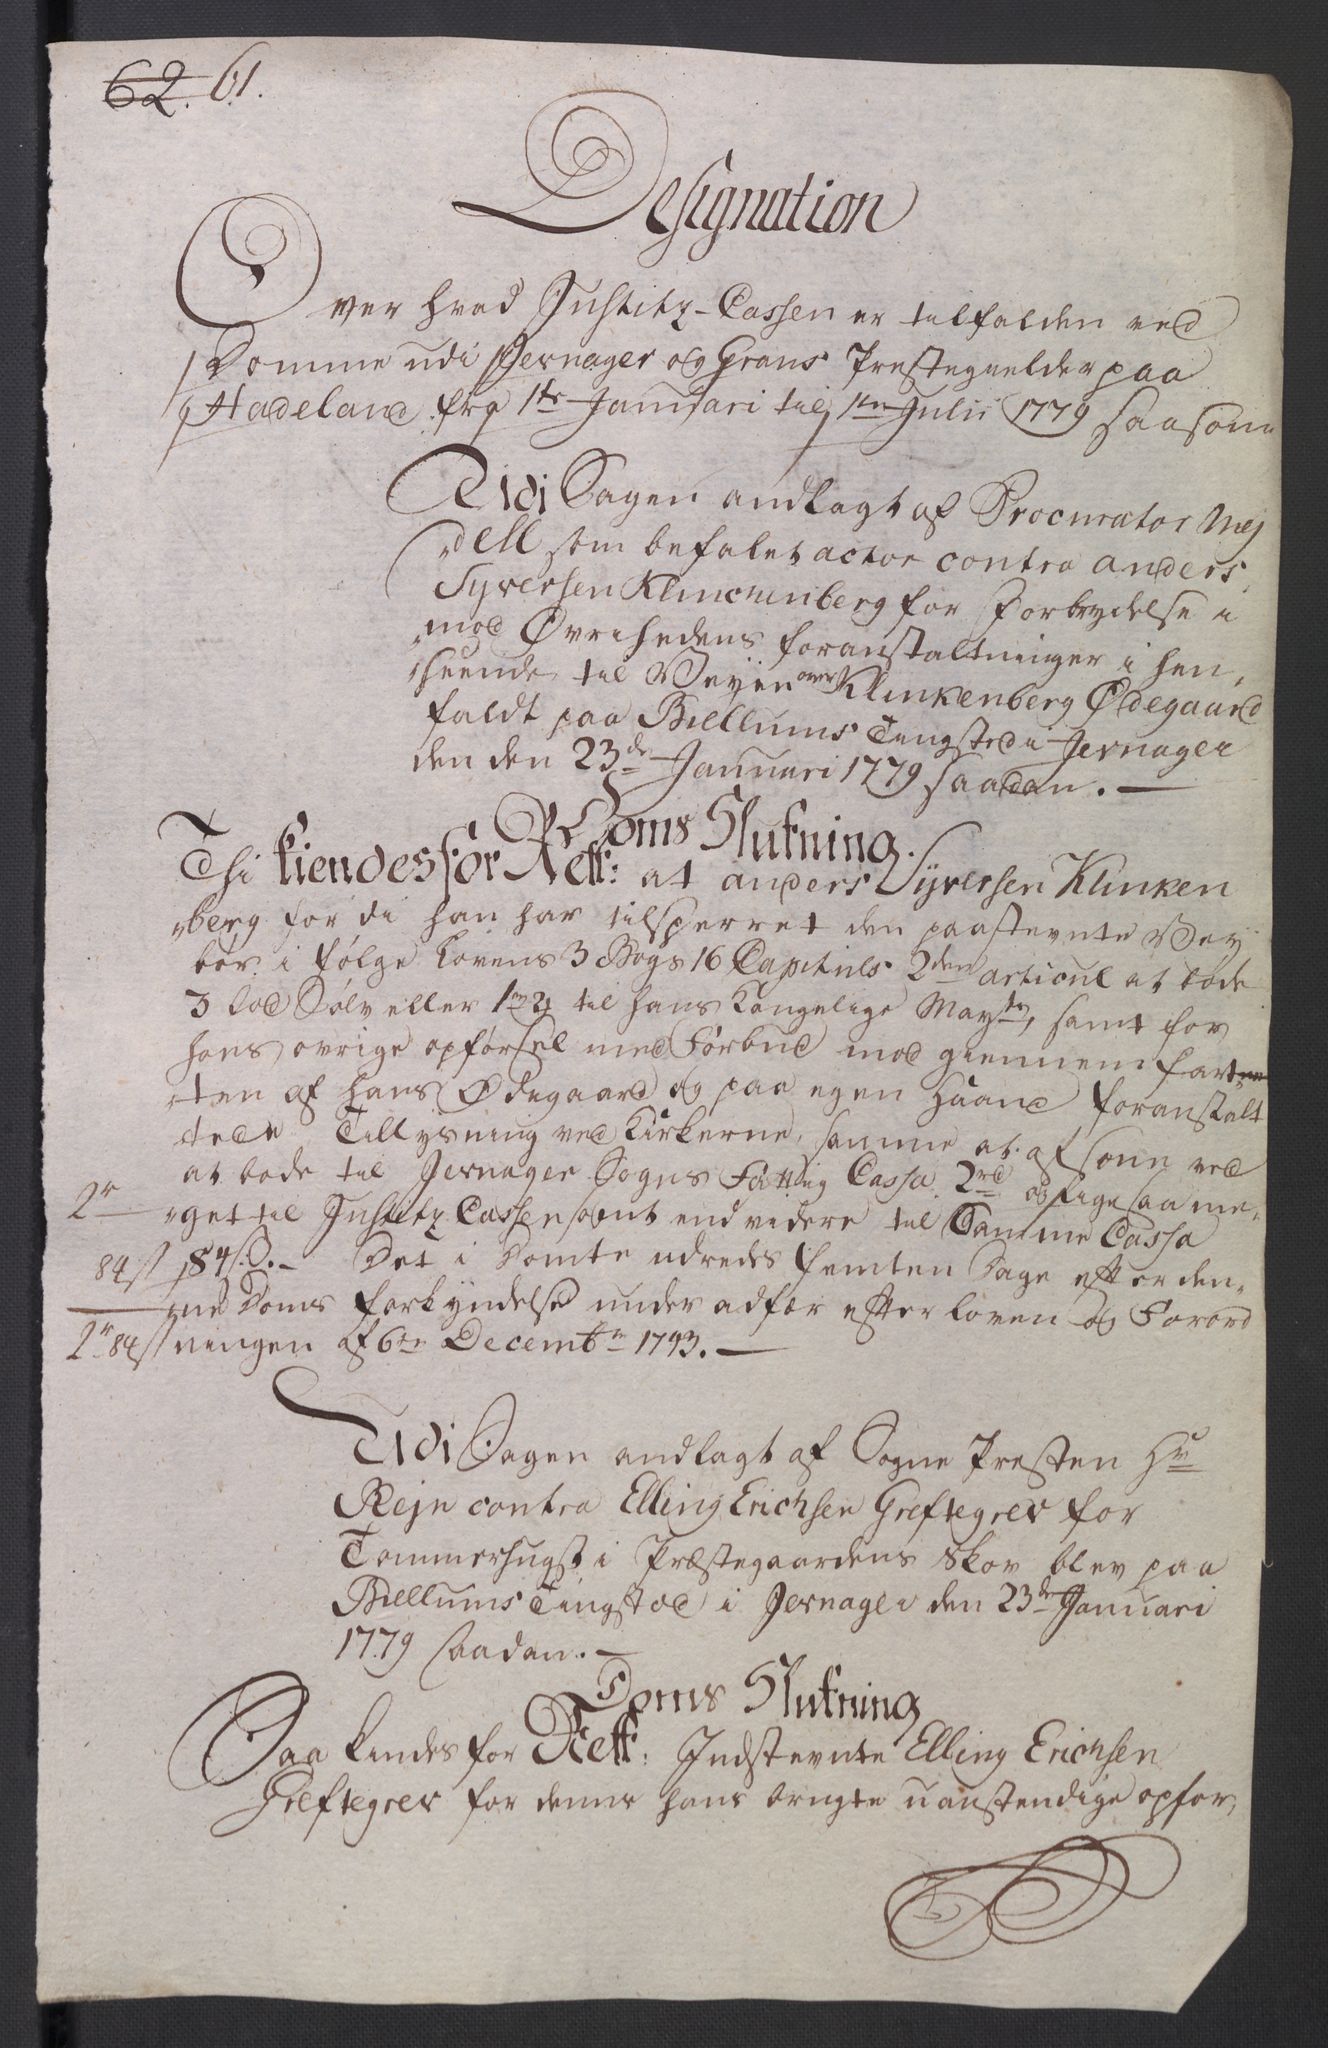 62. 61.
Designation
Over hvad Justitz-Cassen er tilfalden ved
Domme udi Jevnager og Grans Prestegielder paa
Hadeland fra 1te Januari til 1te Julii 1779 saasom
Udi Sagen andlagt af Procurator Mej
dell som befalet actor contra anders
Syversen Klinckenberg for Forbrydelse i
mod Øvrihedens foranstaltninger i hen,
seende til Veyen over Klinkenberg Ødegaard
faldt paa Biellums Tingsted i Jevnager
den den 23de Januari 1779 saadan. —
Doms Slutning.
Thi kiendes for Rett: at anders Syversen Klinken
berg for di han har tilsperret den paastevnte Vey
bør i følge Lovens 3 Bogs 16 Capituls 2den articul at bøde
3 lod Sølv eller til hans Kongelige Mayts, samt for
hans øvrige opførsel med Forbud mod giennem farten
af hans Ødegaard og paa egen Haand foranstalt
tede Tillysning ved Kirkerne, samme at afsone ved
at bøde til Jevnager Sogns Fattig Cassa 2rd og lige saa me,
2r get til Justitz Cassen samt endvidere til Samme Cassa
84s 84s. — Det i Dømte udredes femten Dage efter den,
ne Doms forkyndelse under adfær efter loven og Forord
2r 84s ningen af 6te Decembr 1743. —
Udi Sagen andlagt af Sogne Presten Hr
Rejn contra Elling Erichsen Greftegrev for
Tømmerhugst i Præstegaardens Skov blev paa
Biellums Tingsted i Jevnager den 23de Januari
1779 saadan. —
Doms Slutning
Saa kiendes for Rett: Indstevnte Elling Erichsen
Greftegrev for denne hans brugte uanstendige opfør,